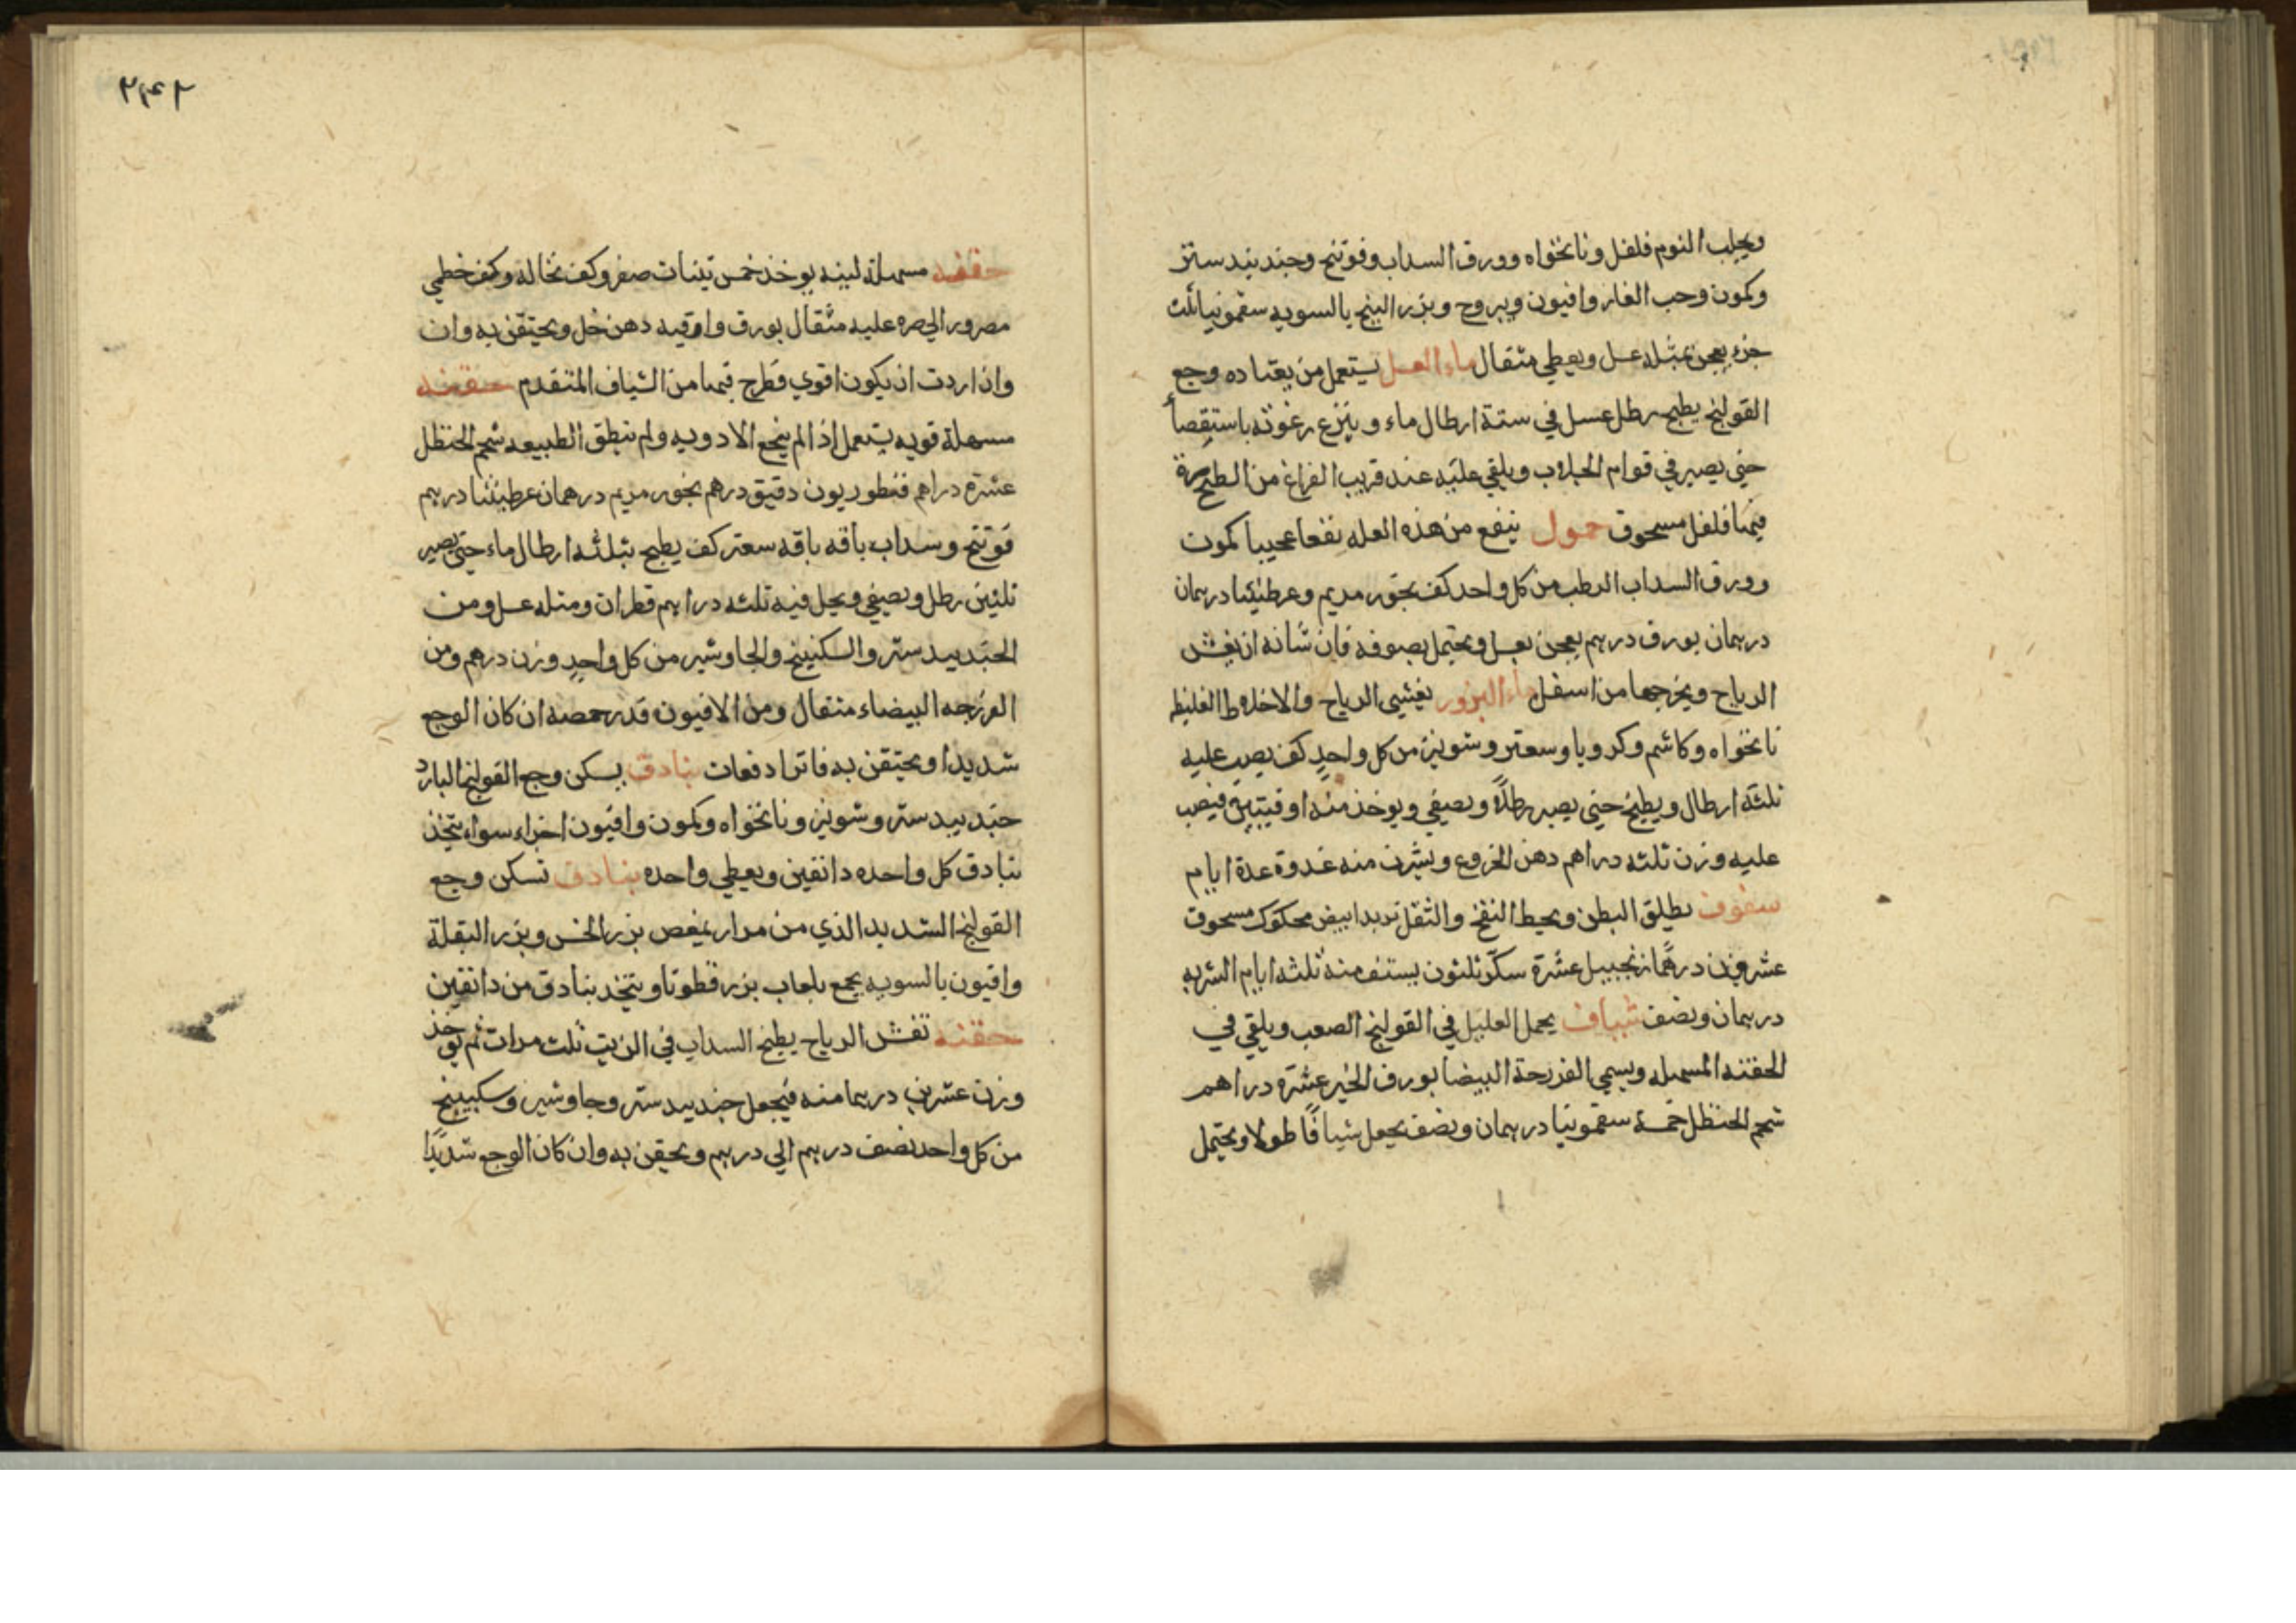 ويجلب النوم فلفل ونانخواه وورق السداب وفوتنج وجندبيدستر
وكمون وحب الغار وافيون ويبروح وبزر البنج بالسويه سقمونيا ثلث
جزء يعجن بمثله عسل ويعطي مثقال ماء العسل يستعمل من يعتاده وجع
القولنج يطبخ رطل عسل في ستة ارطال ماء وينزع رغوته باستقصا
حتي يصير في قوام الجلاب ويلقي عليه عند قريب الفراغ من الطبخ صرة
فيها فلفل مسحوق حمول ينفع من هذه العله نفعا عجيبا كمون
وورق السداب الرطب من كل واحد كف بخور مريم وعرطنيثا درهمان
درهمان بورق درهم يعجن بعسل ويحتمل بصوفه فان شانه ان يفش
الرياح ويخرجها من اسفل ماء البزور يفشي الرياح والاخلاط الغليظ
نانخواه وكاشم وكرويا وسعتر وشونيز من كل واحد كف يصب عليه
ثلثة ارطال ويطبخ حتي يصير رطلاً ويصفي ويوخذ منه اوقيتين فيصب
عليه وزن ثلثه دراهم دهن الخروع ويشرب منه غدوة عدة ايام
سفوف يطلق البطن ويحيط النفخ والثقل تربد ابيض محكوك مسحوق
عشرون درهمًا زنجبيل عشرة سكر ثلثون يستف منه ثلثه ايام الشربه
درهمان ونصف شياف يحمل العليل في القولنج الصعب ويلقي في
الحقنه المسهله ويسمي الفرزجة البيضا بورق الخبز عشرة دراهم
شحم الحنظل خمسة سقمونيا درهمان ونصف يجعل شيافًا طولا ويحتمل
٢٤٢
حقنه مسهلة لينه يوخذ خمس تينات صفر وكف نخاله وكف خطمي
مصرور الي صره عليه مثقال بورق واوقيه دهن خل ويحتقن به وان
وان اردت ان يكون اقوي فطرح فيها من الشياف المتقدم حقنه
مسهلة قويه يستعمل اذا لم ينجع الادويه ولم تنطق الطبيعه شحم الحنظل
عشرة دراهم قنطوريون دقيق درهم بخور مريم درهمان عرطنيثا درهم
فوتنج وسداب باقه باقه سعتر كف يطبخ بثلثه ارطال ماء حتي يصير
ثلثين رطل ويصفي ويحل فيه ثلثه دراهم قطران ومثله عسل ومن
الجندبيدستر والسكبينج والجاوشير من كل واحدٍ وزن درهم ومن
الفرزجه البيضاء مثقال ومن الافيون قدر حمصه ان كان الوجع
شديدا ويحتقن به فاترا دفعات بنادق يسكن وجع القولنج البارد
جندبيدستر وشونيز ونانخواه وكمون وافيون اجزاء سواء يتخذ
بنادق كل واحده دانقين ويعطي واحده بنادق تسكن وجع
القولنج الشديد الذي من مرار بمغص بزر الخس وبزر البقلة
وافيون بالسويه يجمع بلعاب بزر قطونا ويتخذ بنادق من دانقين
حقنه تفش الرياح يطبخ السداب في الزيت ثلث مرات ثم يوخذ
وزن عشرين درهما منه فيجعل جندبيدستر وجاوشير وسكبينج
من كل واحد نصف درهم الي درهم ويحقن به وان كان الوجع شديدًا